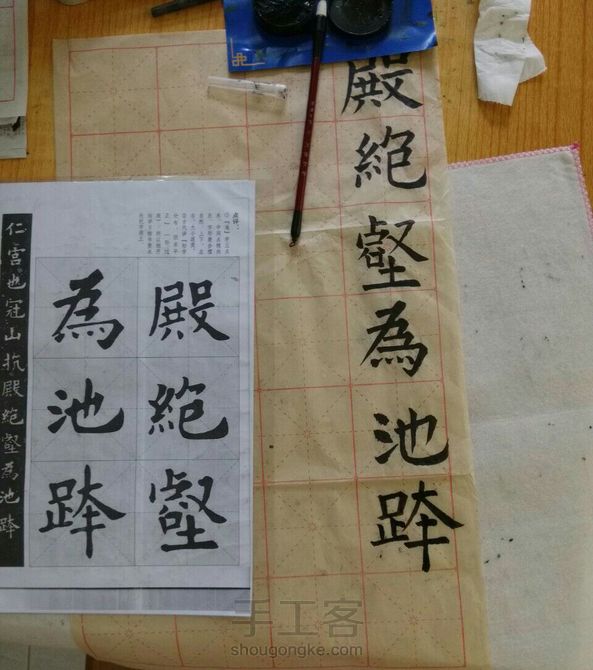 殿絕壑為池跸
殿絕壑
為池跸
仁宮也冠山抗殿絕壑為池跸
点评：
手工客
shougongke.com